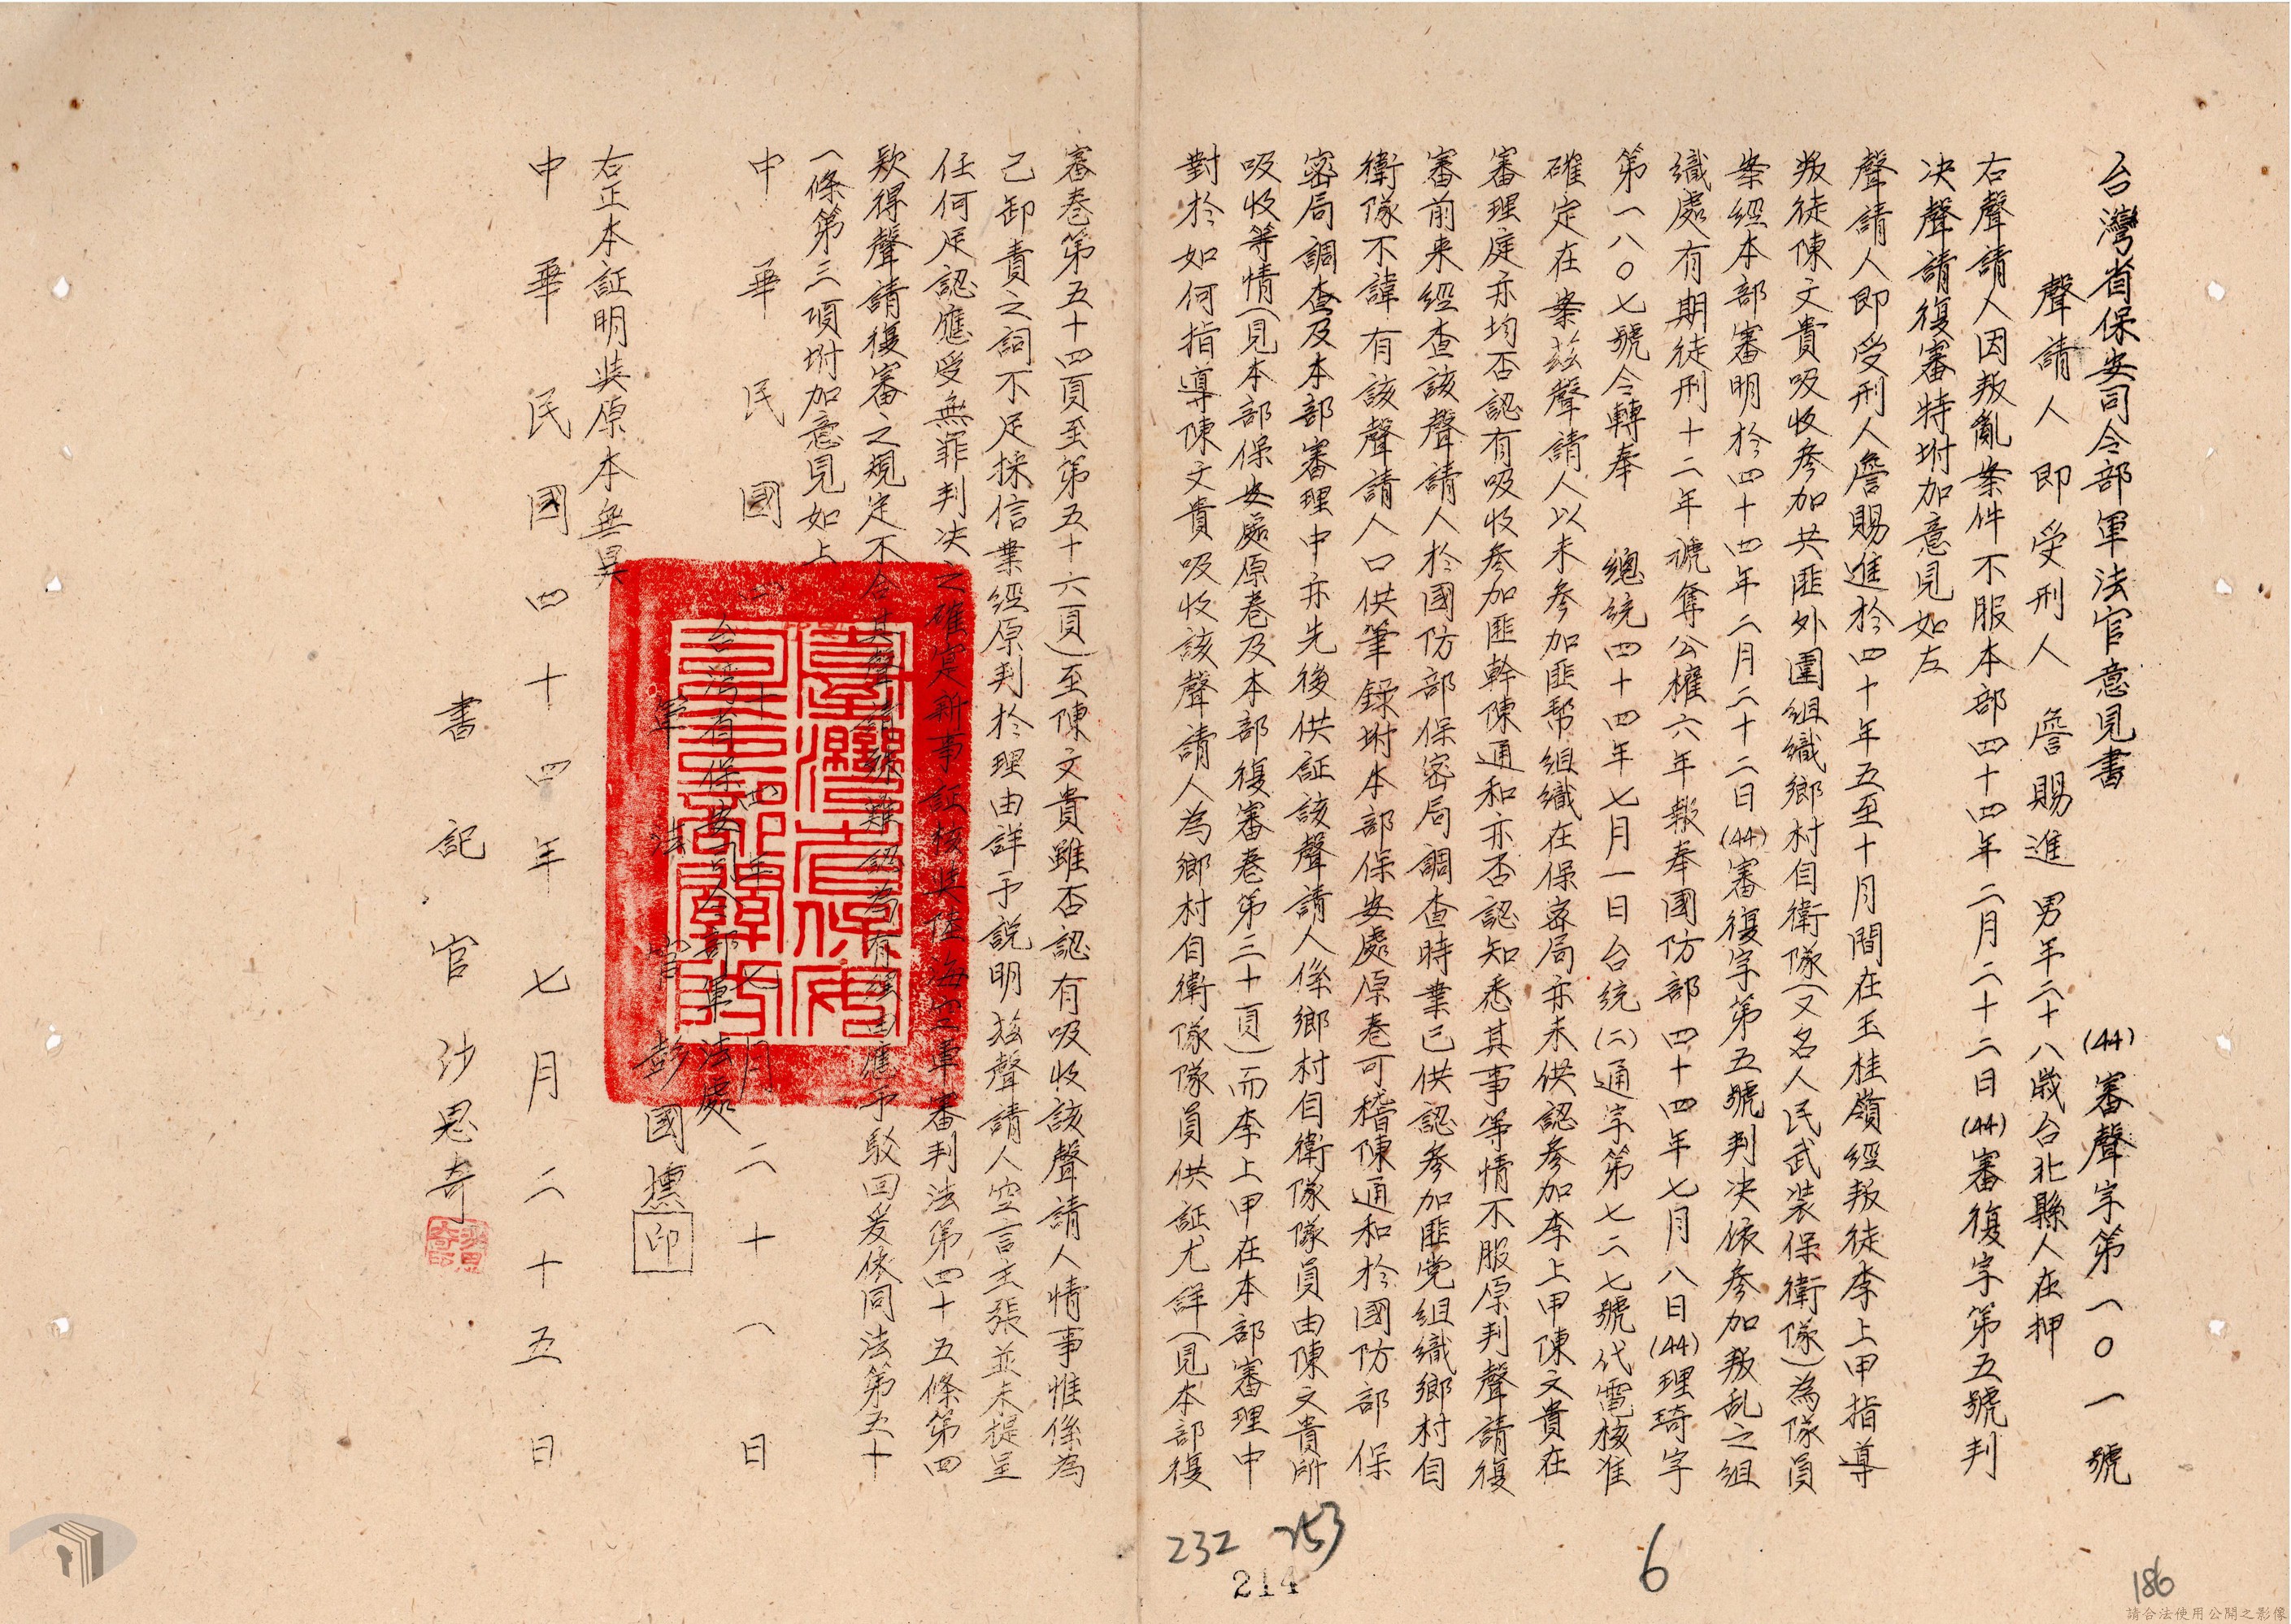 台灣省保安司令部軍法官意見書
(44)審聲字第一〇一號
聲請人即受刑人 詹賜進 男年二十八歲台北縣人在押
右聲請人因叛亂案件不服本部四十四年二月二十二日(44)審復字第五號判
決聲請復審特坿加意見如左
聲請人即受刑人詹賜進於四十年五至十月間在玉桂嶺經叛徒李上甲指導
叛徒陳文貴吸收參加共匪外圍組織鄉村自衛隊(又名人民武装保衛隊)為隊員
案經本部審明於四十四年二月二十二日(44)審復字第五號判決依參加叛乱之組
織處有期徒刑十二年褫奪公權六年報奉國防部四十四年七月八日(44)理琦字
第一八〇七號令轉奉 總統四十四年七月一日台統(二)通字第七二七號代電核准
確定在案茲聲請人以未參加匪帮組織在保密局亦未供認參加李上甲陳文貴在
審理庭亦均否認有吸收參加匪幹陳通和亦否認知悉其事等情不服原判聲請復
審前来經查該聲請人於國防部保密局調查時業已供認參加匪党組織鄉村自
衛隊不諱有該聲請人口供筆錄坿本部保安處原卷可稽陳通和於國防部保
密局調查及本部審理中亦先後供証該聲請人係鄉村自衛隊隊員由陳文貴所
吸收等情(見本部保安處原卷及本部復審卷第三十頁)而李上甲在本部審理中
對於如何指導陳文貴吸收該聲請人為鄉村自衛隊隊員供証尤詳(見本部復
審卷第五十四頁至第五十六頁)至陳文貴雖否認有吸收該聲請人情事惟係為
己卸責之詞不足採信業經原判於理由詳予說明茲聲請人空言主張並未提呈
任何足認應受無罪判決之確實新事証核與陸海空軍審判法第四十五條第四
款得聲請復審之規定不合其聲請殊難認為有理由應予駁回爰依同法第五十
一條第三項坿加意見如上
中華民國四十四年七月二十一日
台灣省保安司令部軍法處
軍法官彭國壎 印
右正本証明與原本無異
中華民國四十四年七月二十五日
書記官沙恩奇
232 253
214
6
186
請合法使用公開之影像